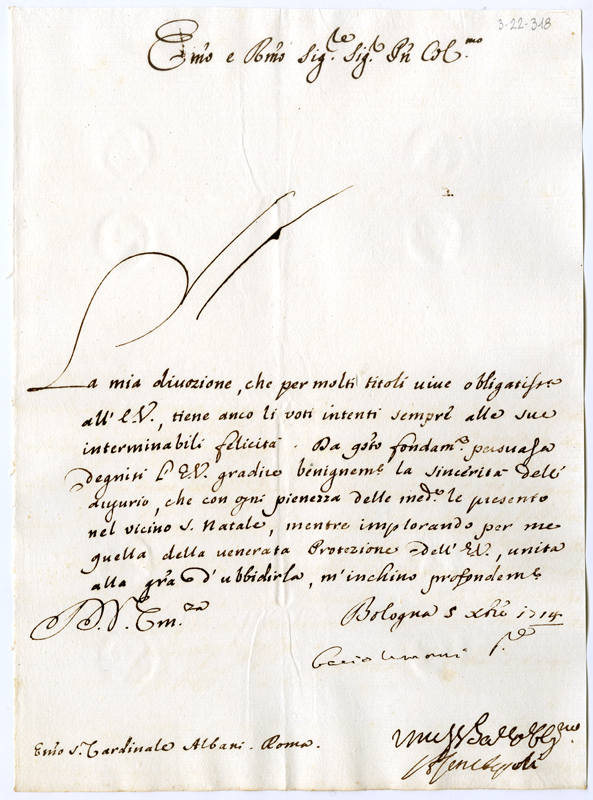 3-22-318
Em̃o e Rm̃o Sig.re Sig.r Pñ Col.mo
La mia diuozione, che per molti titoli uiue obligatissa
all' E.V., tiene anco li voti intenti sempre alle sue
interminabili felicità. Da gsto fondam.o persuasa
degnisi l'E.V. gradire benignemte la sincerità dell'
augurio, che con ogni pienezza delle med.e le presento
nel vicino S. Natale, mentre implorando per me
quella della venerata Protezione dell' E.V., unita
alla gra d'ubbidirla, m'inchino profondemte
D. V. Em.za
Bologna 5 Xbre 1714
Emo S.r Cardinale Albani. Roma.